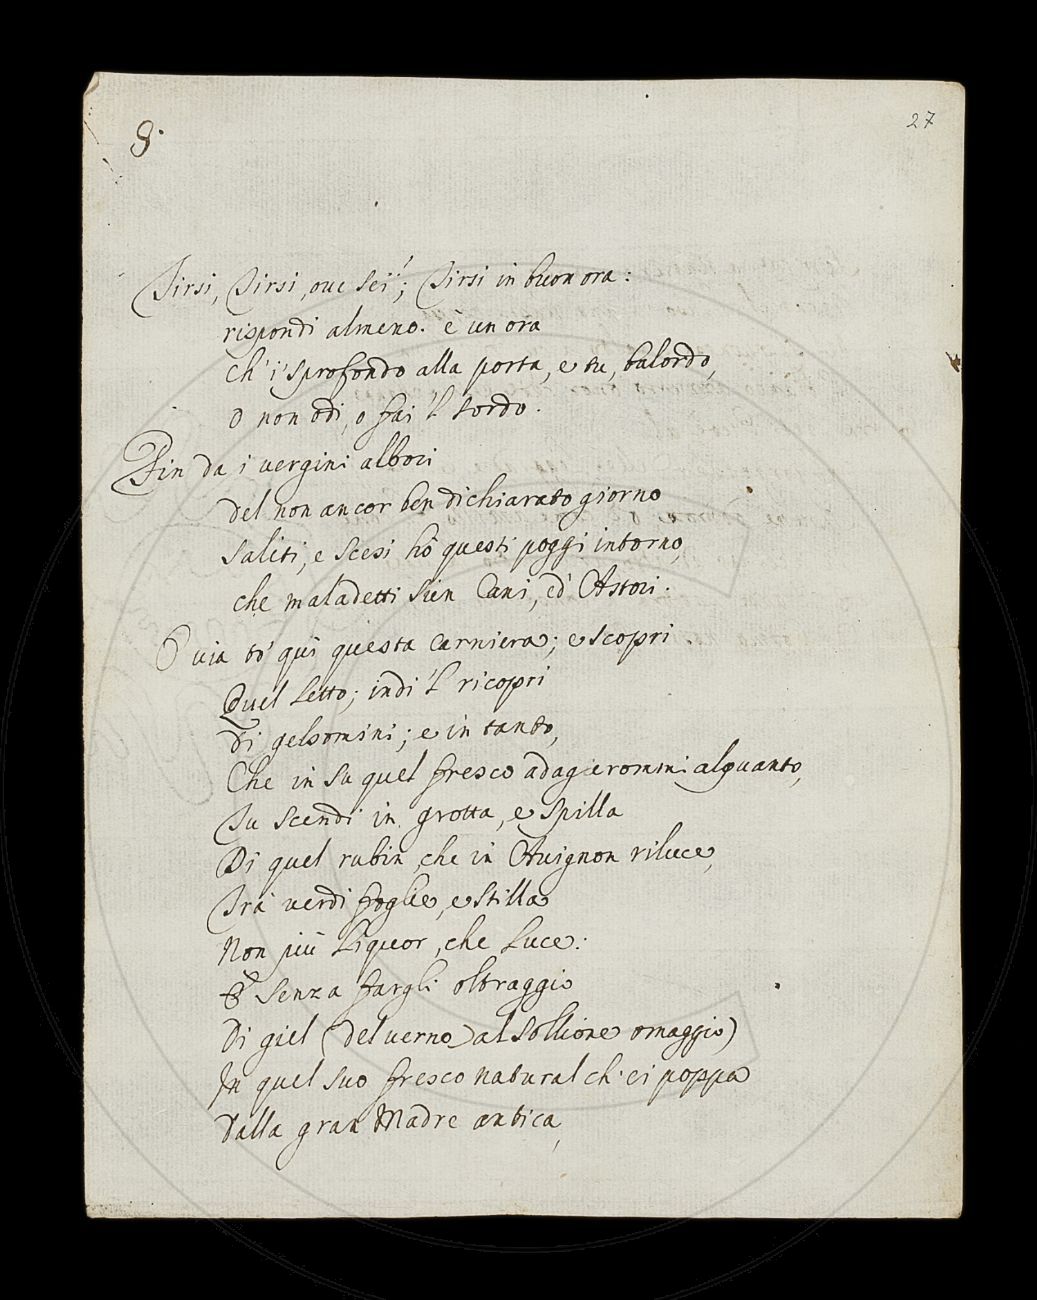 8.
27
Tirsi, Tirsi, oue Sei; Tirsi in buon ora:
rispondi almeno. è un ora
ch' i' sprofondo alla porta, e tu, balordo,
o non odi, o fai 'l sordo.
Fin da i vergini albori
del non ancor ben dichiarato giorno
saliti, e scesi hò questi poggi intorno,
che maladetti Sien Cani, ed Astori.
O uia tò qui questa carniera; e scopri
Quel Letto; indi 'l ricopri
Di gelsomini; e in tanto,
Che in Su quel fresco adagierommi alquanto,
Tu scendi in grotta, e Spilla
Di quel rubin, che in Auignon riluce,
Trà verdi foglie, e Stilla
Non più Liquor, che Luce:
E Senza fargli oltraggio
Di giel (del uerno al Sollione omaggio)
In quel Suo fresco natural ch' ei poppa
Dalla gran Madre antica,